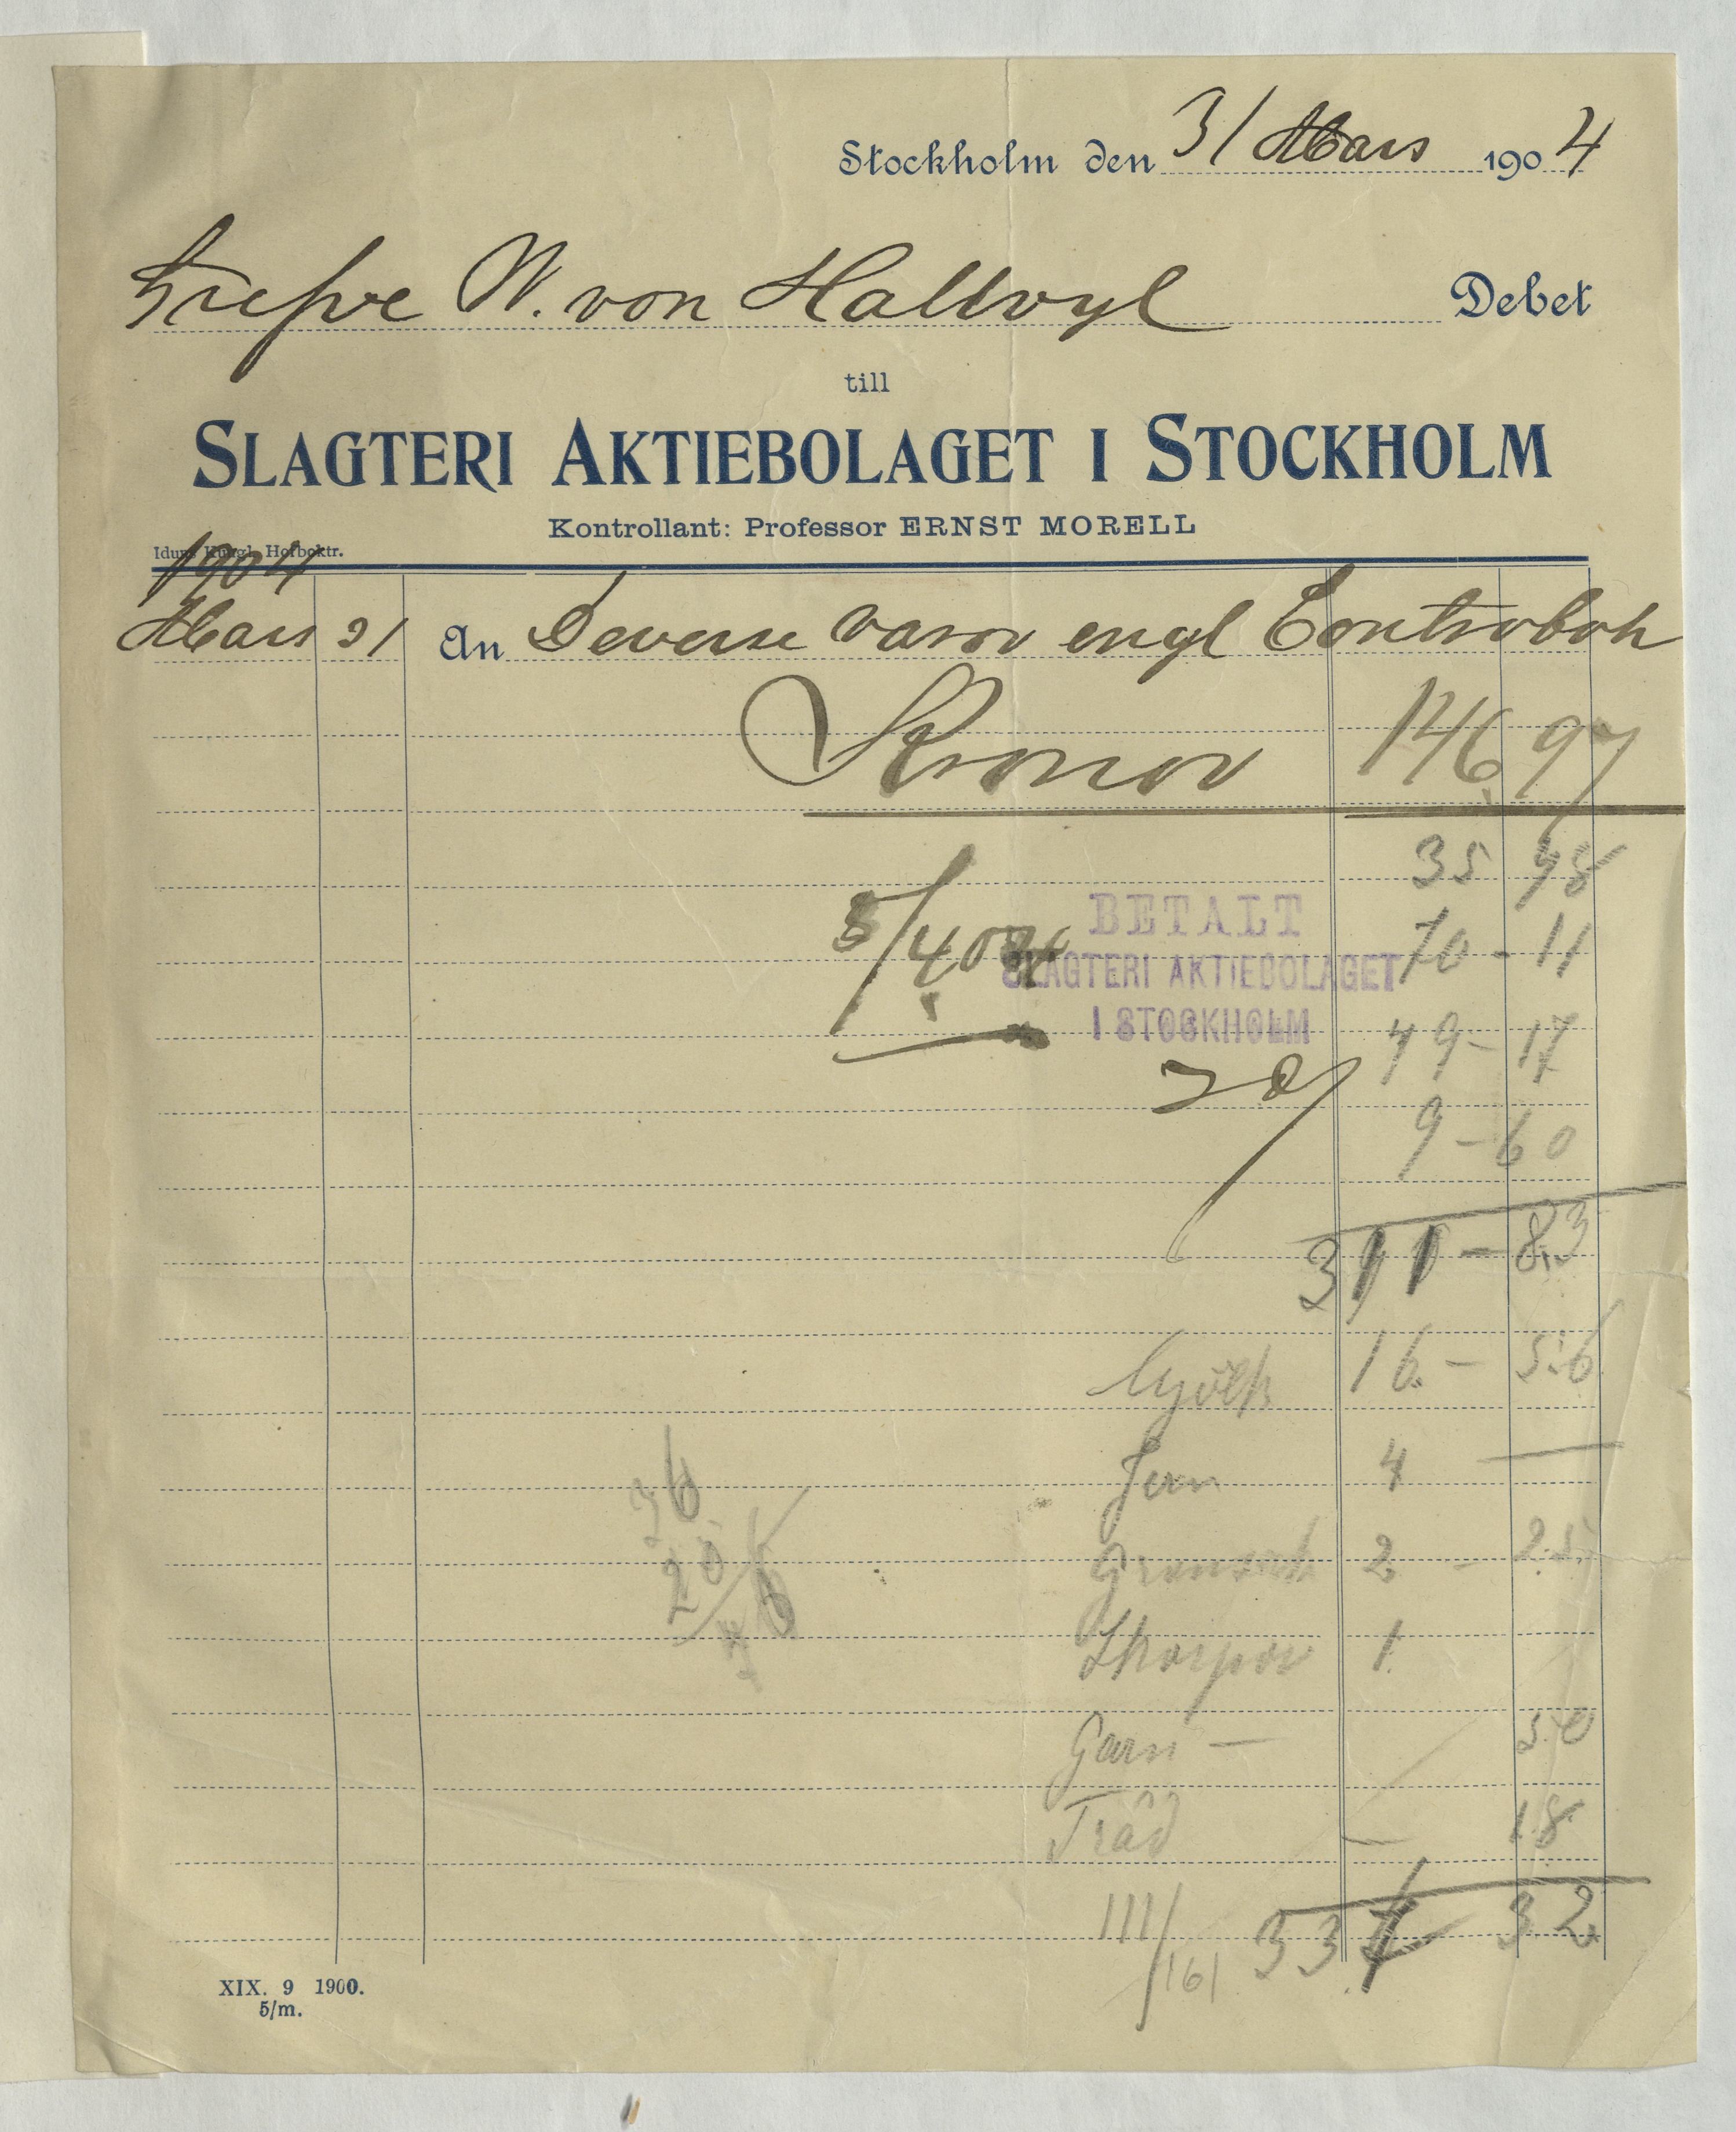 Stockholm den 31 Mars 1904
W. von Hallwyl Debet
till
SLAGTERI AKTIEBOLAGET I STOCKHOLM
Kontrollant: Professor ERNST MORELL
Iduns Kungl. Hofboktr.
1904
Mars 31 An Deverse varor engl Contrabok
Kronor 146 97
35 98
5/4 04 BETALT 70 - 11
SLAGTERI AKTIEBOLAGET
I STOCKHOLM 49 - 17
9 - 60
311 - 83
Mjölk 16 - 56
Jern 4 —
2 - 25
Skorpor 1
Garn — 50
Tråd — 18
36
20
III/161 337 32
XIX. 9 1900.
5/m.